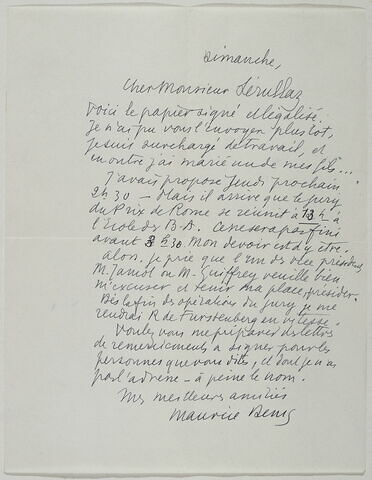 Dimanche,
Cher Monsieur Sérullaz
Voici le papier signé et légalisé.
Je n'ai pu vous l'envoyer plus tôt,
je suis surchargé de travail, et
en outre j'ai marié un de mes fils...
J'avais proposé Jeudi prochain
2h 30 – Mais il arrive que le jury
du Prix de Rome se réunit à 13 h à
l'Ecole des B-A. Ce ne sera pas fini
avant 3 h 30. Mon devoir est d'y être.
Alors je prie que l'un des vice présidents
M. Jamot ou M. Guiffrey veuille bien
m'excuser et tenir ma place, présider.
Dès la fin des opérations du jury je me
rendrai R. de Furstenberg en vitesse.
Voulez vous me préparer des lettres
de remerciements à signer pour les
personnes que vous dites, et dont je n'ai
pas l'adresse – à peine le nom.
Mes meilleures amitiés
Maurice Denis